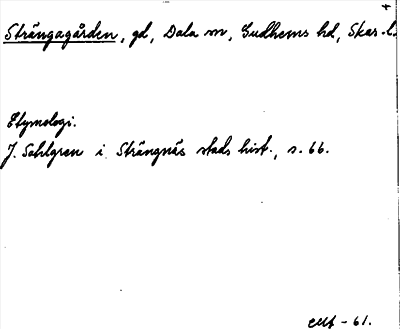 Strängagården, gd, Dala sn, Gudhems hd, Skar.l.
Etymologi.
J. Sahlgren i Strängnäs stads hist., s. 66.
-61.